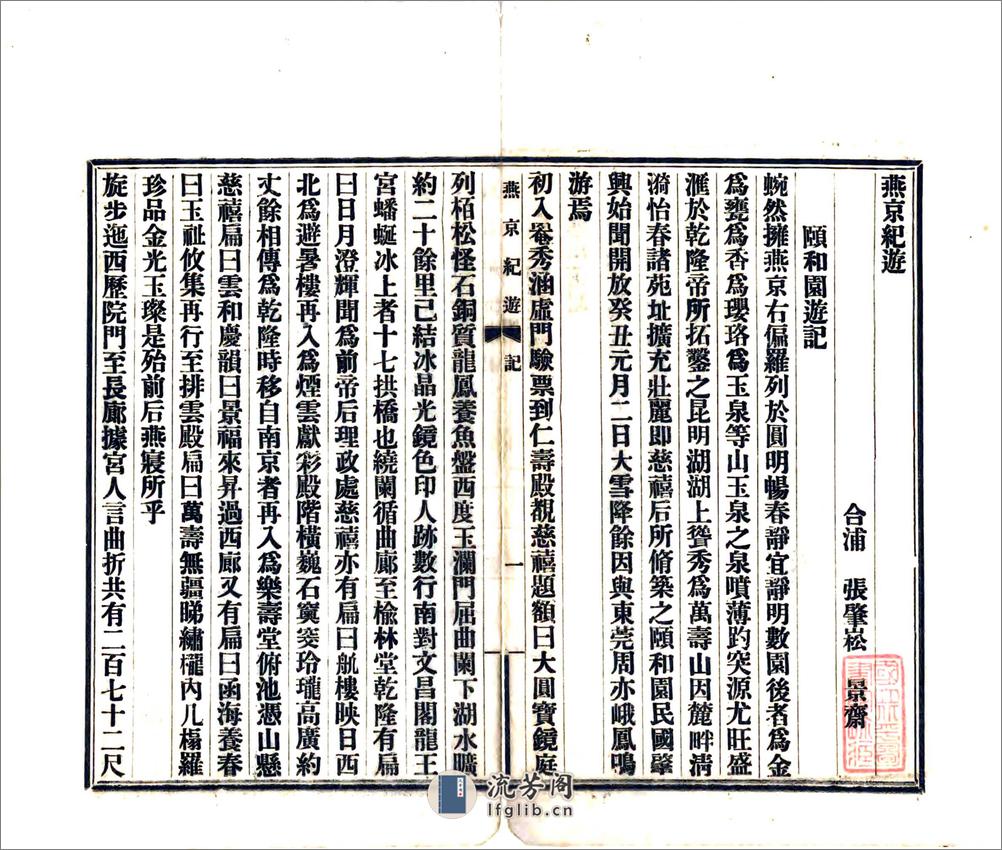 燕京紀遊
頤和園遊記
合浦　張肇崧　景齋
蜿然擁燕京右偏羅列於圓明暢春靜宜靜明數園後者為金
為甕為香為瓔珞為玉泉等山玉泉之泉噴薄趵突源尤旺盛
滙於乾隆帝所拓鑿之昆明湖湖上聳秀為萬壽山因麓畔清
漪怡春諸苑址擴充壯麗即慈禧后所脩築之頤和園民國肇
興始聞開放癸丑元月二日大雪降餘因與東莞周亦峨鳳鳴
游焉
初入罨秀涵虛門驗票到仁壽殿覩慈禧題額曰大圓寶鏡庭
燕京紀遊　記　一
列栢松怪石銅質龍鳳養魚盤西度玉瀾門屈曲闌下湖水曠
約二十餘里已結冰晶光鏡色印人跡數行南對文昌閣龍王
宮蟠蜒冰上者十七拱橋也繞闌循曲廊至楡林堂乾隆有扁
曰日月澄輝聞為前帝后理政處慈禧亦有扁曰航樓映日西
北為避暑樓再入為煙雲獻彩殿階橫巍石窾窔玲瓏高廣約
丈餘相傳為乾隆時移自南京者再入為樂壽堂俯池憑山懸
慈禧扁曰雲和慶韻曰景福來昇過西廊又有扁曰函海養春
曰玉祉攸集再行至排雲殿扁曰萬壽無疆睇繡櫳內几榻羅
珍品金光玉璨是殆前后燕寢所乎
旋步迤西歷院門至長廊據宮人言曲折共有二百七十二尺
流芳閣
lfglib.cn